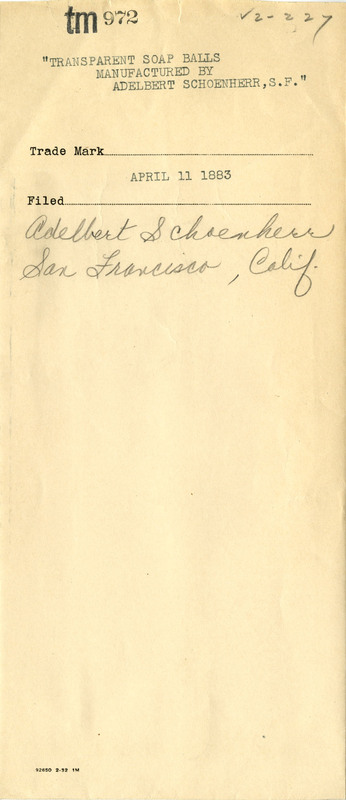 tm 972 V2-227
"TRANSPARENT SOAP BALLS
MANUFACTURED BY
ADELBERT SCHOENHERR,S.F."
Trade Mark
APRIL 11 1883
Filed
Adelbert Schoenherr
San Francisco, Calif.
92650 2-32 1M